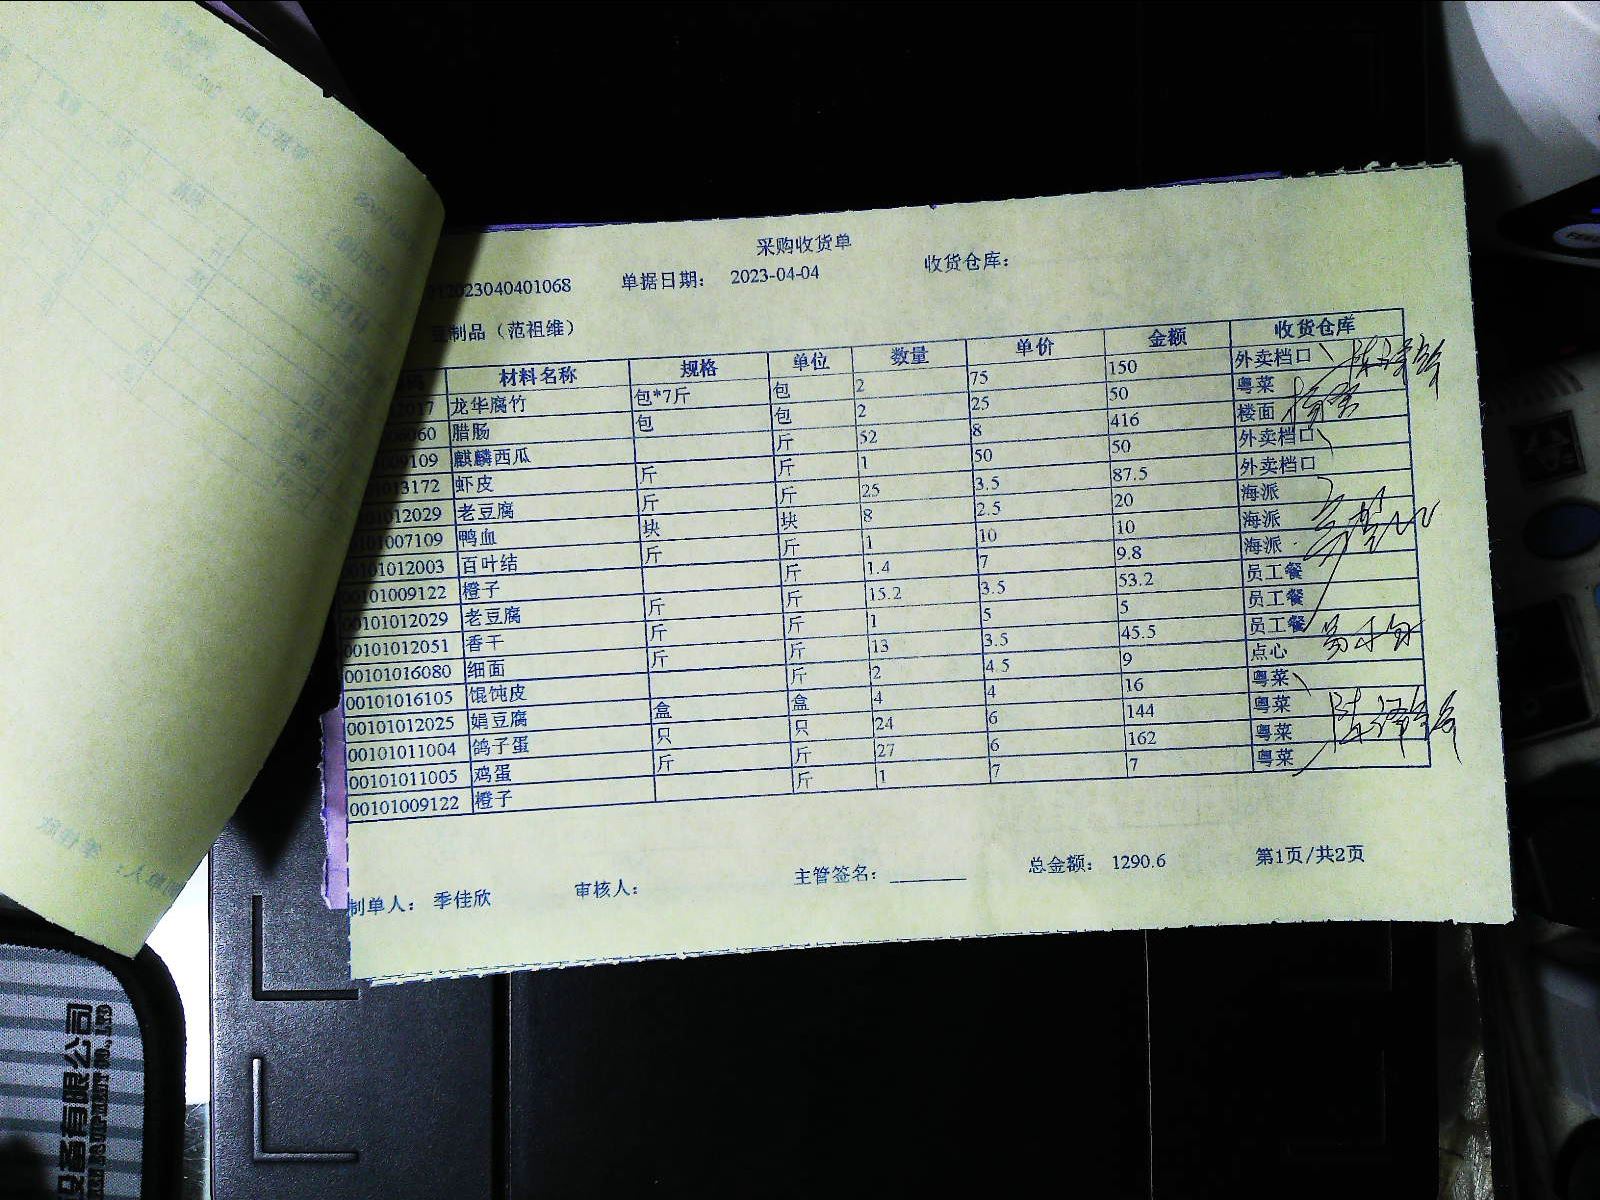 采购收货单
12023040401068 单据日期： 2023-04-04 收货仓库：
豆制品（范祖维）
材料名称 规格 单位 数量 单价 金额 收货仓库
2017 龙华腐竹 包*7斤 包 2 75 150 外卖档口
060 腊肠 包 包 2 25 50 粤菜
009109 麒麟西瓜 斤 52 8 416 楼面
1013172 虾皮 斤 斤 1 50 50 外卖档口
01012029 老豆腐 斤 斤 25 3.5 87.5 外卖档口
101007109 鸭血 块 块 8 2.5 20 海派
0101012003 百叶结 斤 斤 1 10 10 海派
00101009122 橙子 斤 1.4 7 9.8 海派
00101012029 老豆腐 斤 斤 15.2 3.5 53.2 员工餐
00101012051 香干 斤 斤 1 5 5 员工餐
00101016080 细面 斤 斤 13 3.5 45.5 员工餐
00101016105 馄饨皮 斤 2 4.5 9 点心
00101012025 娟豆腐 盒 盒 4 4 16 粤菜
00101011004 鸽子蛋 只 只 24 6 144 粤菜
00101011005 鸡蛋 斤 斤 27 6 162 粤菜
00101009122 橙子 斤 1 7 7 粤菜
制单人： 季佳欣 审核人： 主管签名： 总金额： 1290.6 第1页/共2页
设备有限公司